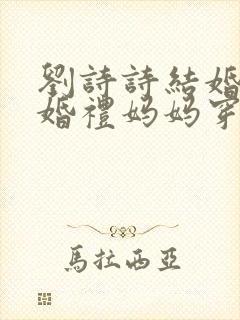 劉詩詩結婚
婚禮媽媽穿
馬拉西亞